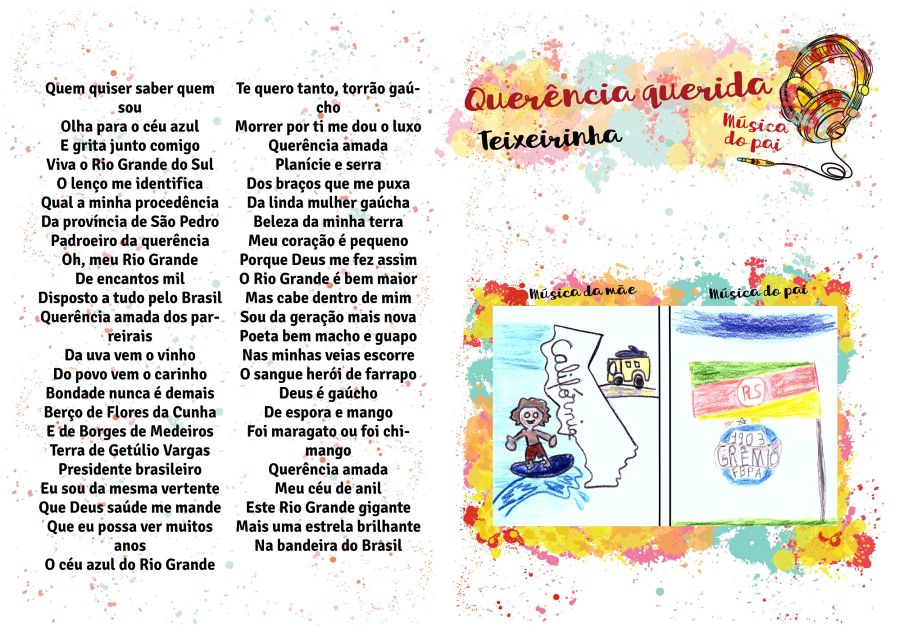 Quem quiser saber quem
sou
Olha para o céu azul
E grita junto comigo
Viva o Rio Grande do Sul
O lenço me identifica
Qual a minha procedência
Da província de São Pedro
Padroeiro da querência
Oh, meu Rio Grande
De encantos mil
Disposto a tudo pelo Brasil
Querência amada dos par-
reirais
Da uva vem o vinho
Do povo vem o carinho
Bondade nunca é demais
Berço de Flores da Cunha
E de Borges de Medeiros
Terra de Getúlio Vargas
Presidente brasileiro
Eu sou da mesma vertente
Que Deus saúde me mande
Que eu possa ver muitos
anos
O céu azul do Rio Grande
Te quero tanto, torrão gaú-
cho
Morrer por ti me dou o luxo
Querência amada
Planície e serra
Dos braços que me puxa
Da linda mulher gaúcha
Beleza da minha terra
Meu coração é pequeno
Porque Deus me fez assim
O Rio Grande é bem maior
Mas cabe dentro de mim
Sou da geração mais nova
Poeta bem macho e guapo
Nas minhas veias escorre
O sangue herói de farrapo
Deus é gaúcho
De espora e mango
Foi maragato ou foi chi-
mango
Querência amada
Meu céu de anil
Este Rio Grande gigante
Mais uma estrela brilhante
Na bandeira do Brasil
Querência querida
Teixeirinha
Música
do pai
Música da mãe
Música do pai
Califórnia
RS
1903
GRÊMIO
FBPA